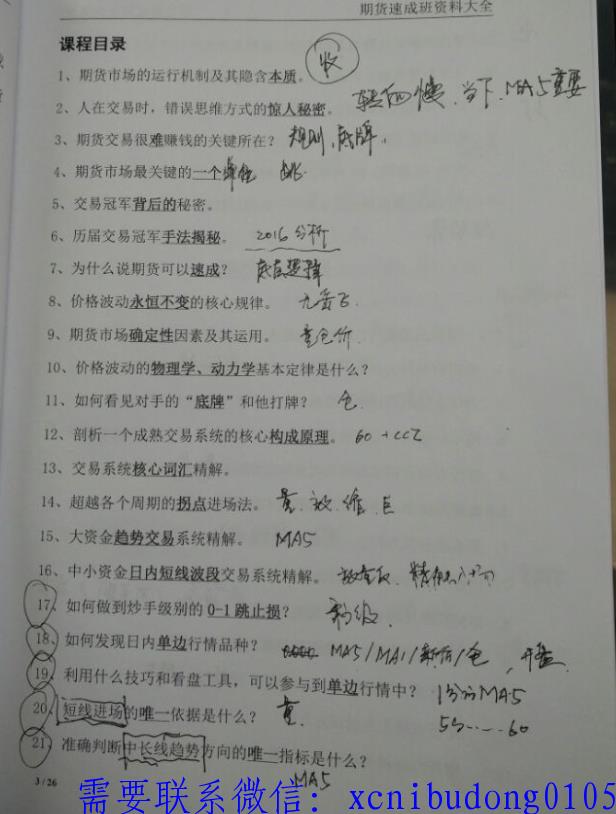 期货速成班资料大全
课程目录
1、期货市场的运行机制及其隐含本质。 收
2、人在交易时，错误思维方式的惊人秘密。 当下、MA5重要
3、期货交易很难赚钱的关键所在？ 规则，底牌。
4、期货市场最关键的一个单位
5、交易冠军背后的秘密。
6、历届交易冠军手法揭秘。 2016分析
7、为什么说期货可以速成？
8、价格波动永恒不变的核心规律。
9、期货市场确定性因素及其运用。 量仓价
10、价格波动的物理学、动力学基本定律是什么？
11、如何看见对手的“底牌”和他打牌？ 仓
12、剖析一个成熟交易系统的核心构成原理。 60
13、交易系统核心词汇精解。
14、超越各个周期的拐点进场法。 量
15、大资金趋势交易系统精解。 MA5
16、中小资金日内短线波段交易系统精解。
17、如何做到炒手级别的0-1跳止损？ 秒级
18、如何发现日内单边行情品种？ MA5/MA1/ /仓，开盘
19、利用什么技巧和看盘工具，可以参与到单边行情中？ 1分MA5
20、短线进场的唯一依据是什么？ 量
21、准确判断中长线趋势方向的唯一指标是什么？
MA5
3 / 26
需要联系微信：xcnibudong0105